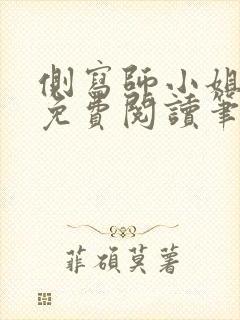 側寫師小姐
免費閱讀筆
菲碩莫著